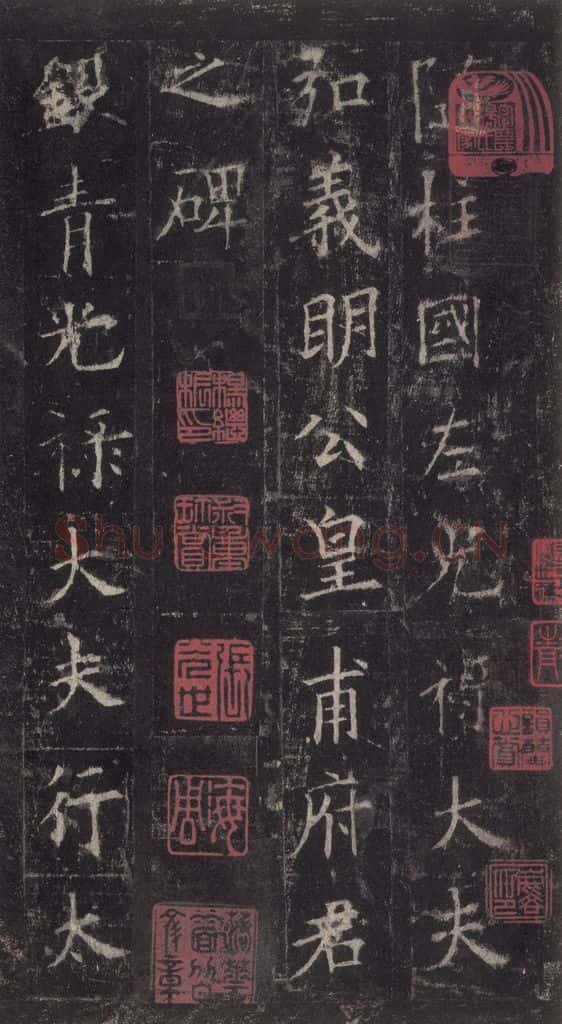 隨柱國左光祿大夫
弘義明公皇甫府君
之碑
銀青光祿大夫行太
Shufawang.CN